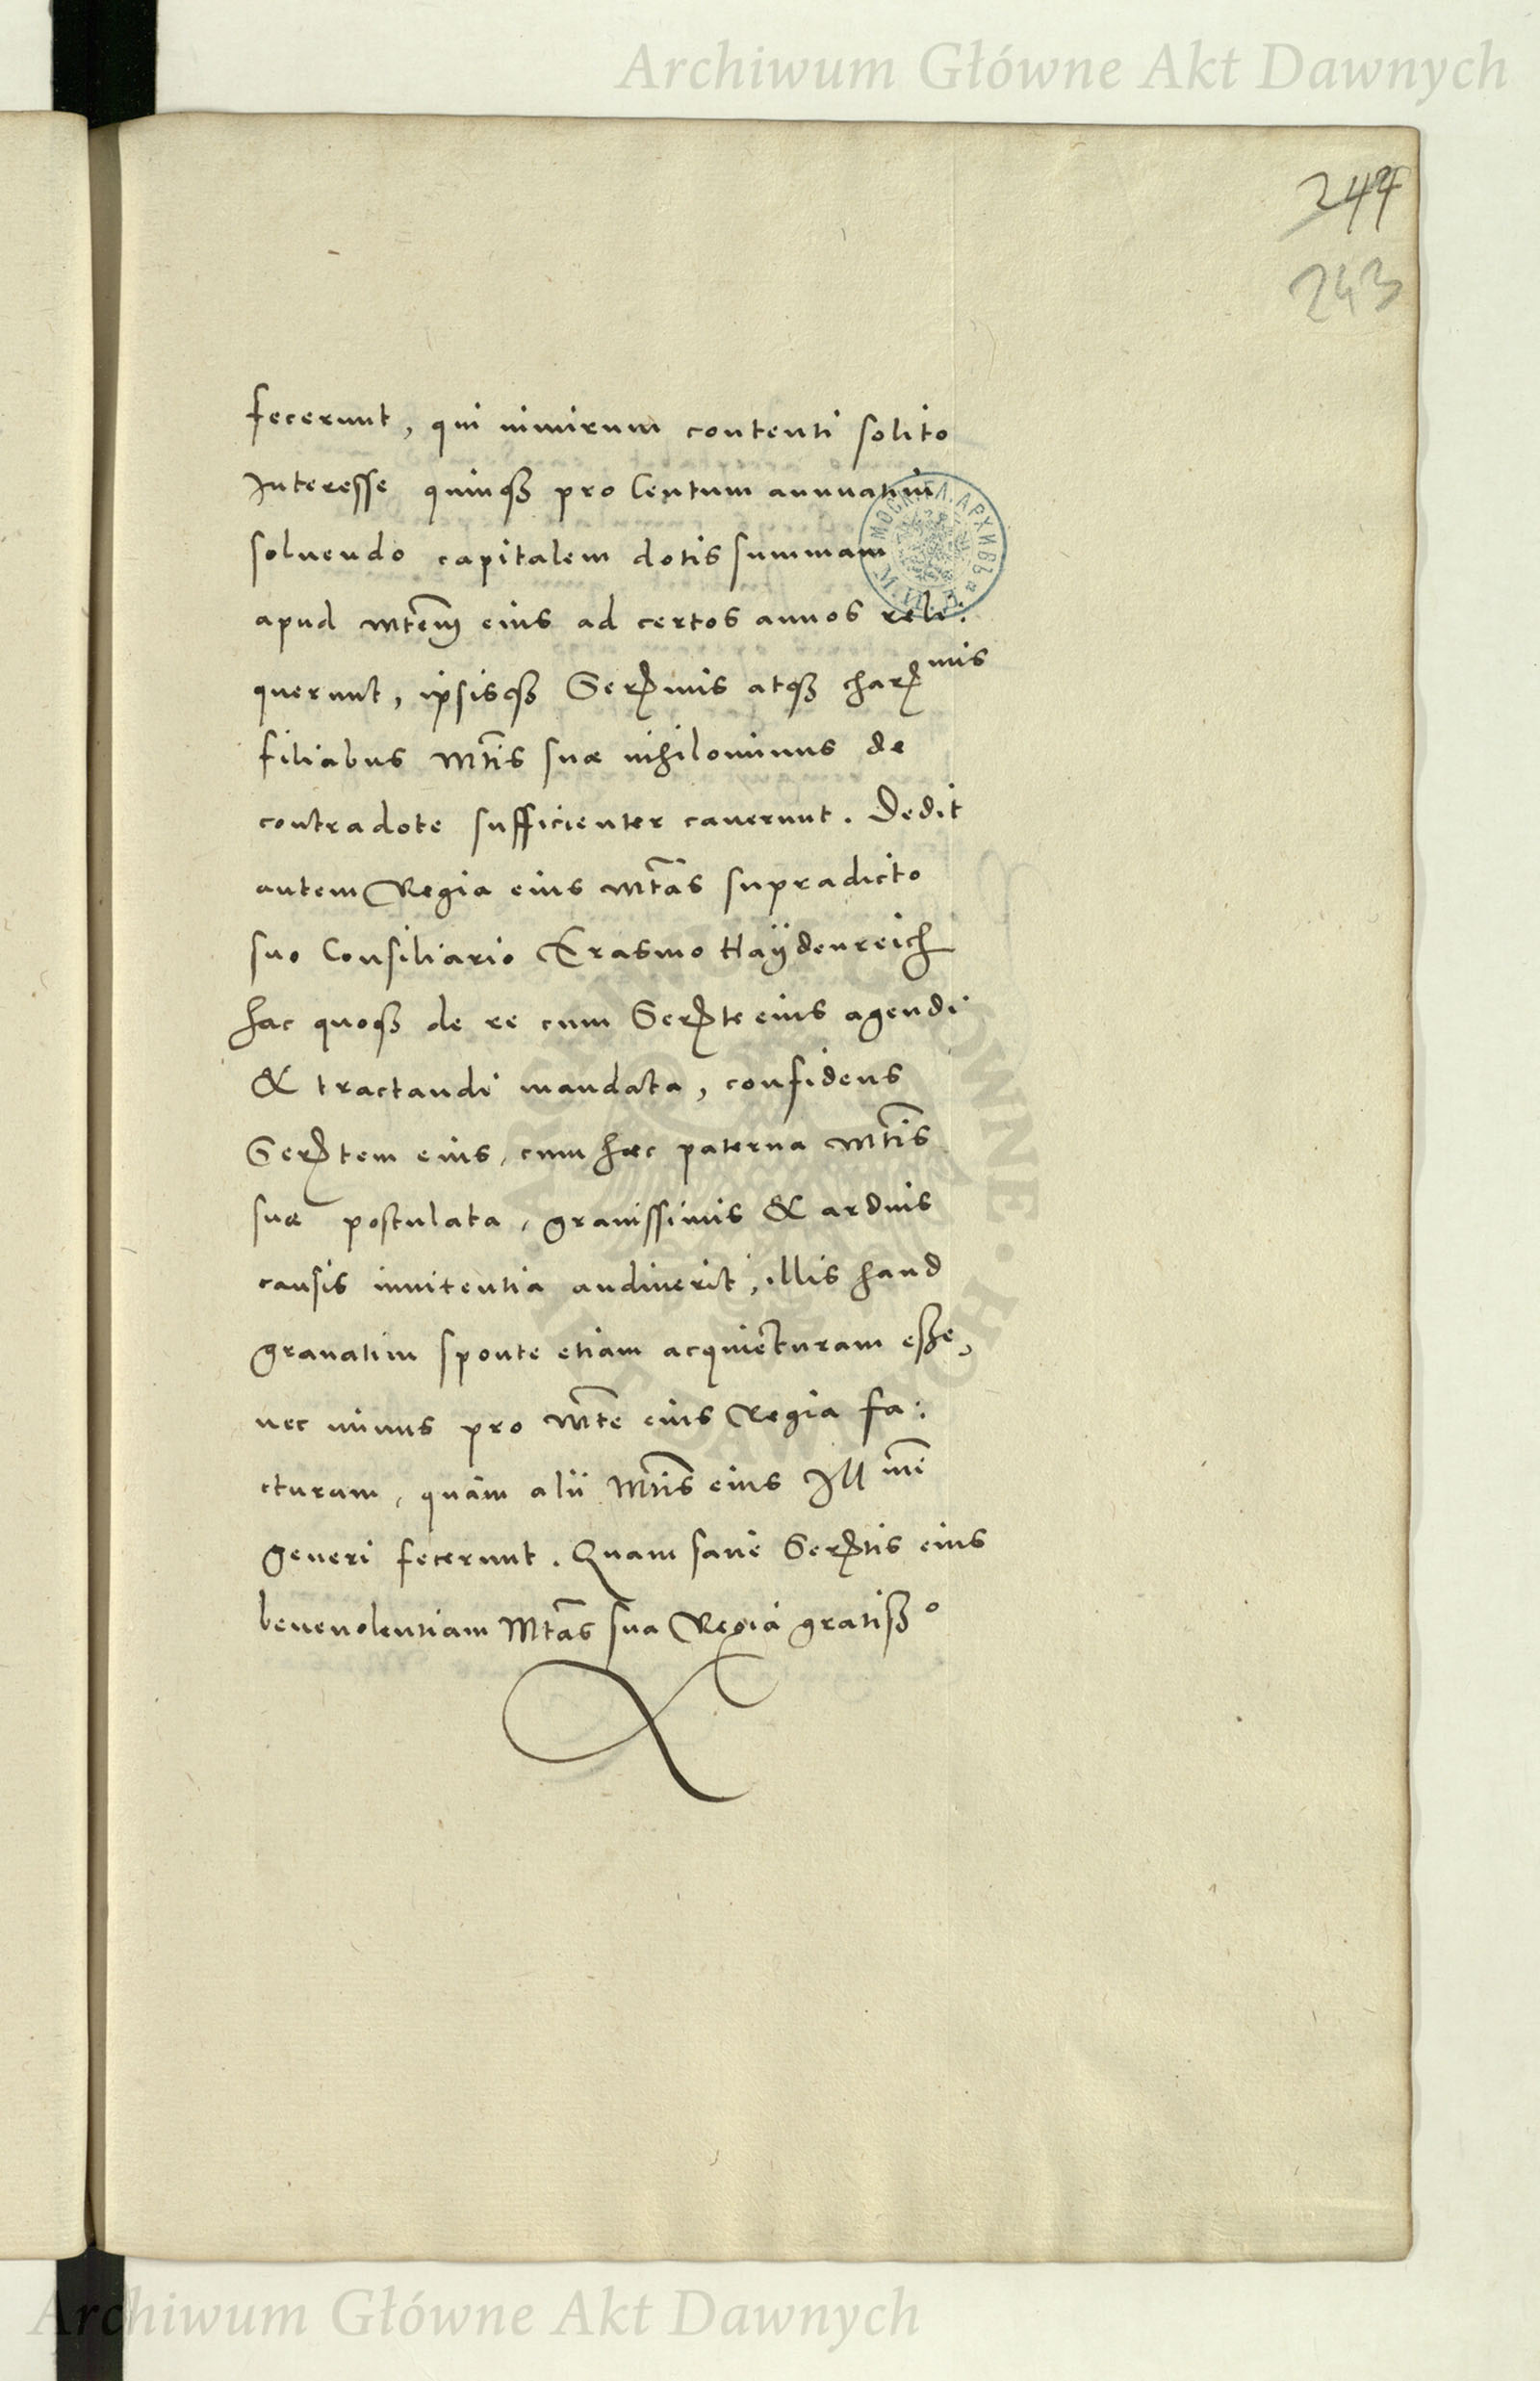 Archiwum Główne Akt Dawnych
244
243
fecerunt, qui nimirum contenti solito
Interesse quinqȝ pro Centum annuatim
soluendo capitalem dotis summam
apud Mtem̄ eius ad certos annos reli:
querunt, ipsisqȝ Serᵐⁱˢ atqȝ charᵐⁱˢ
filiabus Mt̄is suæ nihilominus de
contradote sufficienter cauerunt. Dedit
autem Regia eius Mt̄as supradicto
suo Consiliario Erasmo Haÿdenreich
hac quoqȝ de re cum Serte eius agendi
& tractandi mandata, confidens
Sertem eius, cum hæc paterna Mt̄is
suæ postulata, grauissimis & arduis
causis innitentia audiuerit, illis haud
grauatim sponte etiam acquieturam esse,
nec minus pro Mt̄e eius Regia fa:
cturam, quàm alii Mt̄is eius Illᵐⁱ
generi fecerunt. Quam sane Sertis eius
beneuolentiam Mt̄as sua Regia gratissº
Archiwum Główne Akt Dawnych